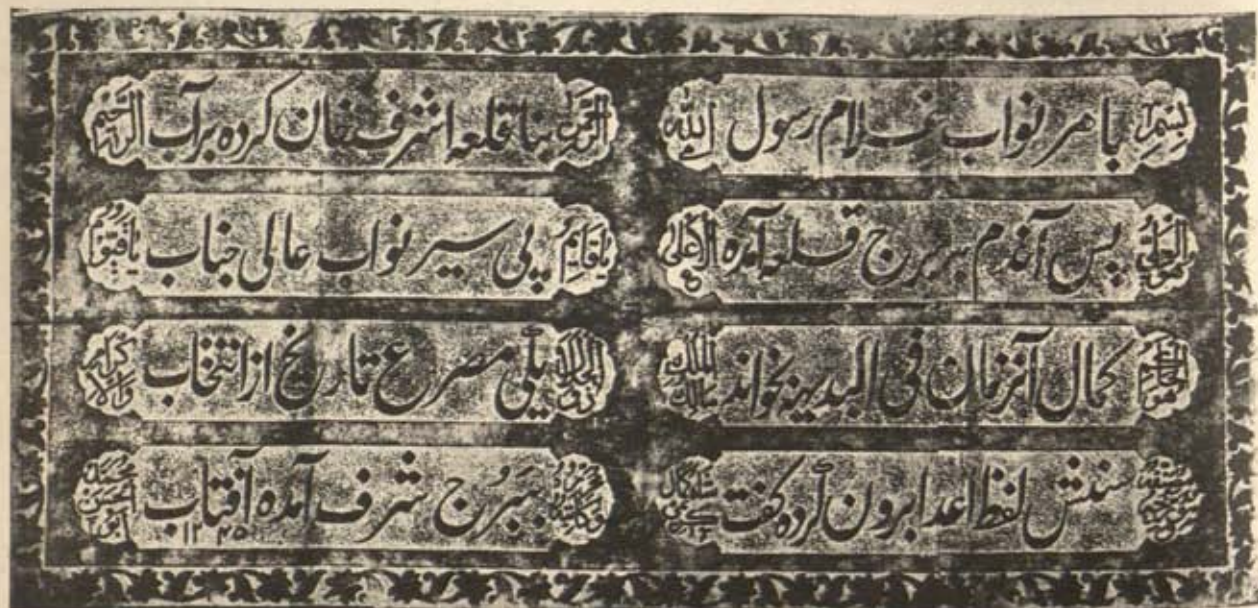 بسم الله بامر نواب غلام رسول الرحمن بنا قلعه اشرف خان کرده بر آب الرحیم
العلی پس آندم ببرج قلعه آمده الاعلی یا قایم پی سیر نواب عالی جناب
کمال آنزمان فی البدیهه بخواند مالک الملک ذو الجلال یکی مصرع تاریخ از انتخاب والاکرام
سنش لفظ اعدا برون کرده گفت ببرج شرف آمده آفتاب ۱۲۴۵